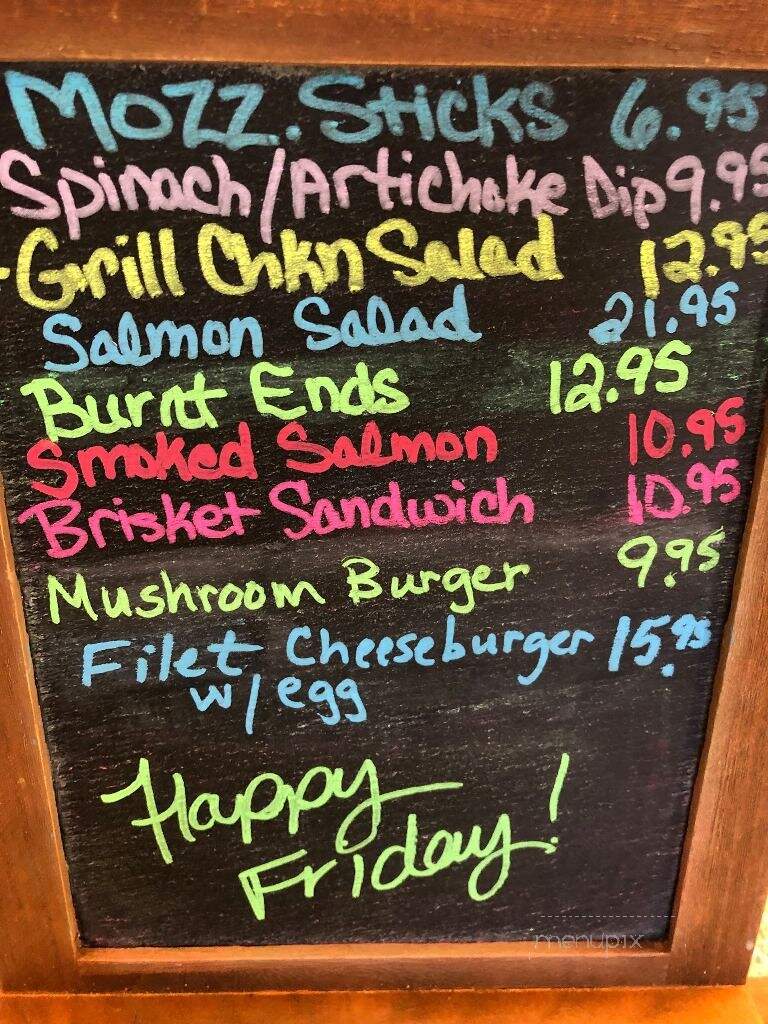 Mozz. Sticks 6.95
Spinach/Artichoke Dip 9.95
Grill Chkn Salad 12.95
Salmon Salad 21.95
Burnt Ends 12.95
Smoked Salmon 10.95
Brisket Sandwich 10.95
Mushroom Burger 9.95
Filet Cheeseburger 15.95
w/ egg
Happy
Friday!
menupix